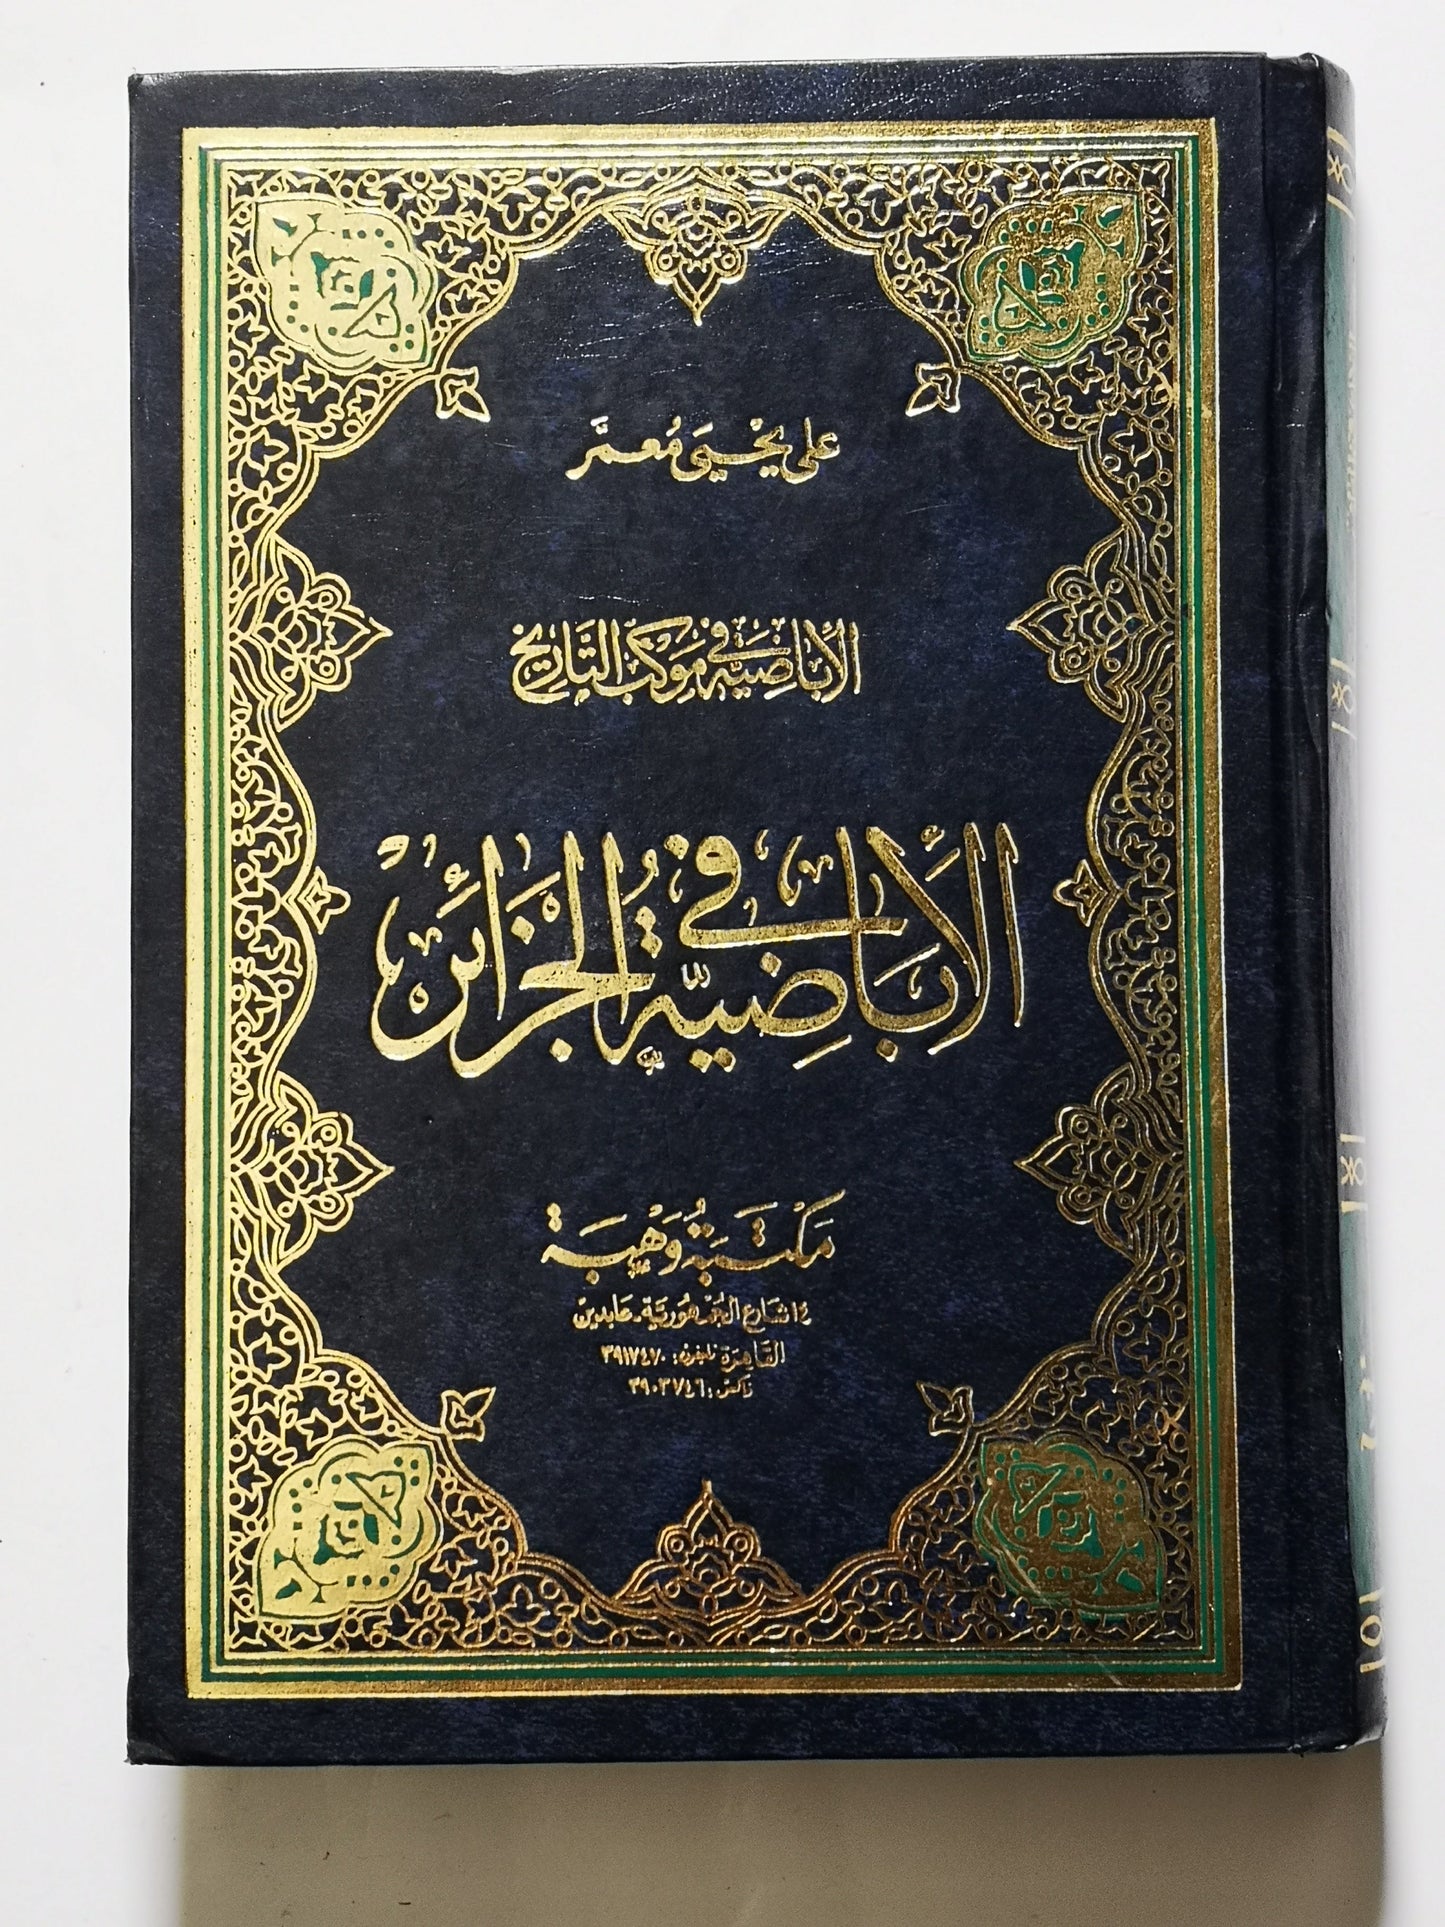 على يحيى معمر
الأباضية في موكب التاريخ
الأباضية في الجزائر
مكتبة وهبة
١٤ شارع الجمهورية - عابدين
القاهرة تليفون: ٣٩١٧٤٧٠
فاكس: ٣٩٠٣٧٤٦